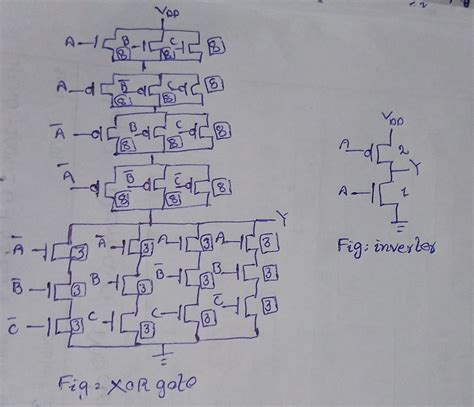 VDD
A B 8 C 8 8
A B̅ 8 C 8 8
A̅ B 8 C 8 8
A̅ B̅ 8 C̅ 8 8
Y
A̅ 3 A̅ 3 A 3 A 3
B̅ 3 B 3 B̅ 3 B 3
C̅ 3 C 3 C 3 C̅ 3
Fig: XOR gate
VDD
A 2
Y
A 1
Fig: inverter